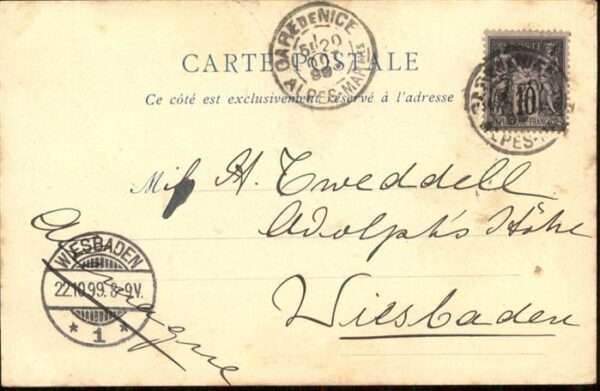 GARE DE NICE
ALPES-MARMES
CARTE POSTALE
Ce côté est exclusivement réservé à l'adresse
10
Miss H. Tweddell
Adolph's Höhe
Wiesbaden
Allemagne
WIESBADEN
22.10.99. 8-9V.
* 1 *